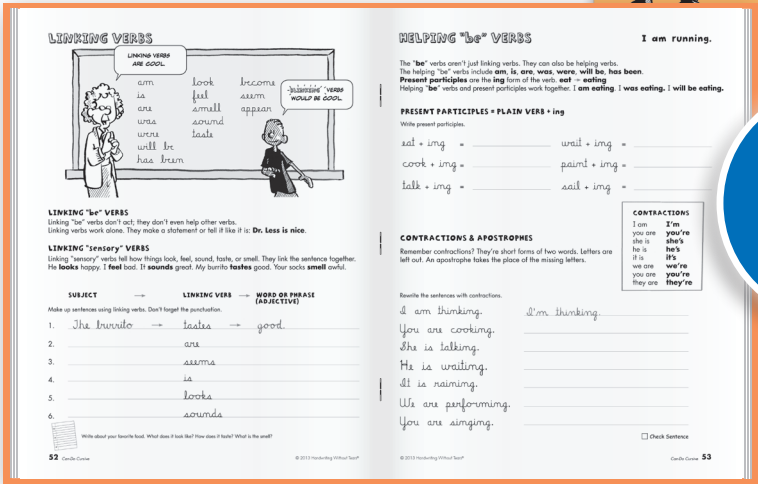 LINKING VERBS
LINKING VERBS
ARE COOL.
am look become
is feel seem
are smell appear
was sound
were taste
will be
has been
"BLINKING" VERBS
WOULD BE COOL.
LINKING "be" VERBS
Linking "be" verbs don't act; they don't even help other verbs.
Linking verbs work alone. They make a statement or tell it like it is: Dr. Less is nice.
LINKING "sensory" VERBS
Linking "sensory" verbs tell how things look, feel, sound, taste, or smell. They link the sentence together.
He looks happy. I feel bad. It sounds great. My burrito tastes good. Your socks smell awful.
SUBJECT → LINKING VERB → WORD OR PHRASE
(ADJECTIVE)
Make up sentences using linking verbs. Don't forget the punctuation.
1. The burrito → tastes → good.
2. are
3. seems
4. is
5. looks
6. sounds
Write about your favorite food. What does it look like? How does it taste? What is the smell?
52 Can-Do Cursive
© 2013 Handwriting Without Tears®
HELPING "be" VERBS
I am running.
The "be" verbs aren't just linking verbs. They can also be helping verbs.
The helping "be" verbs include am, is, are, was, were, will be, has been.
Present participles are the ing form of the verb. eat → eating
Helping "be" verbs and present participles work together. I am eating. I was eating. I will be eating.
PRESENT PARTICIPLES = PLAIN VERB + ing
Write present participles.
eat + ing = wait + ing =
cook + ing = paint + ing =
talk + ing = sail + ing =
CONTRACTIONS & APOSTROPHES
Remember contractions? They're short forms of two words. Letters are
left out. An apostrophe takes the place of the missing letters.
CONTRACTIONS
I am I'm
you are you're
she is she's
he is he's
it is it's
we are we're
you are you're
they are they're
Rewrite the sentences with contractions.
I am thinking. I'm thinking.
You are cooking.
She is talking.
He is waiting.
It is raining.
We are performing.
You are singing.
Check Sentence
© 2013 Handwriting Without Tears®
Can-Do Cursive 53